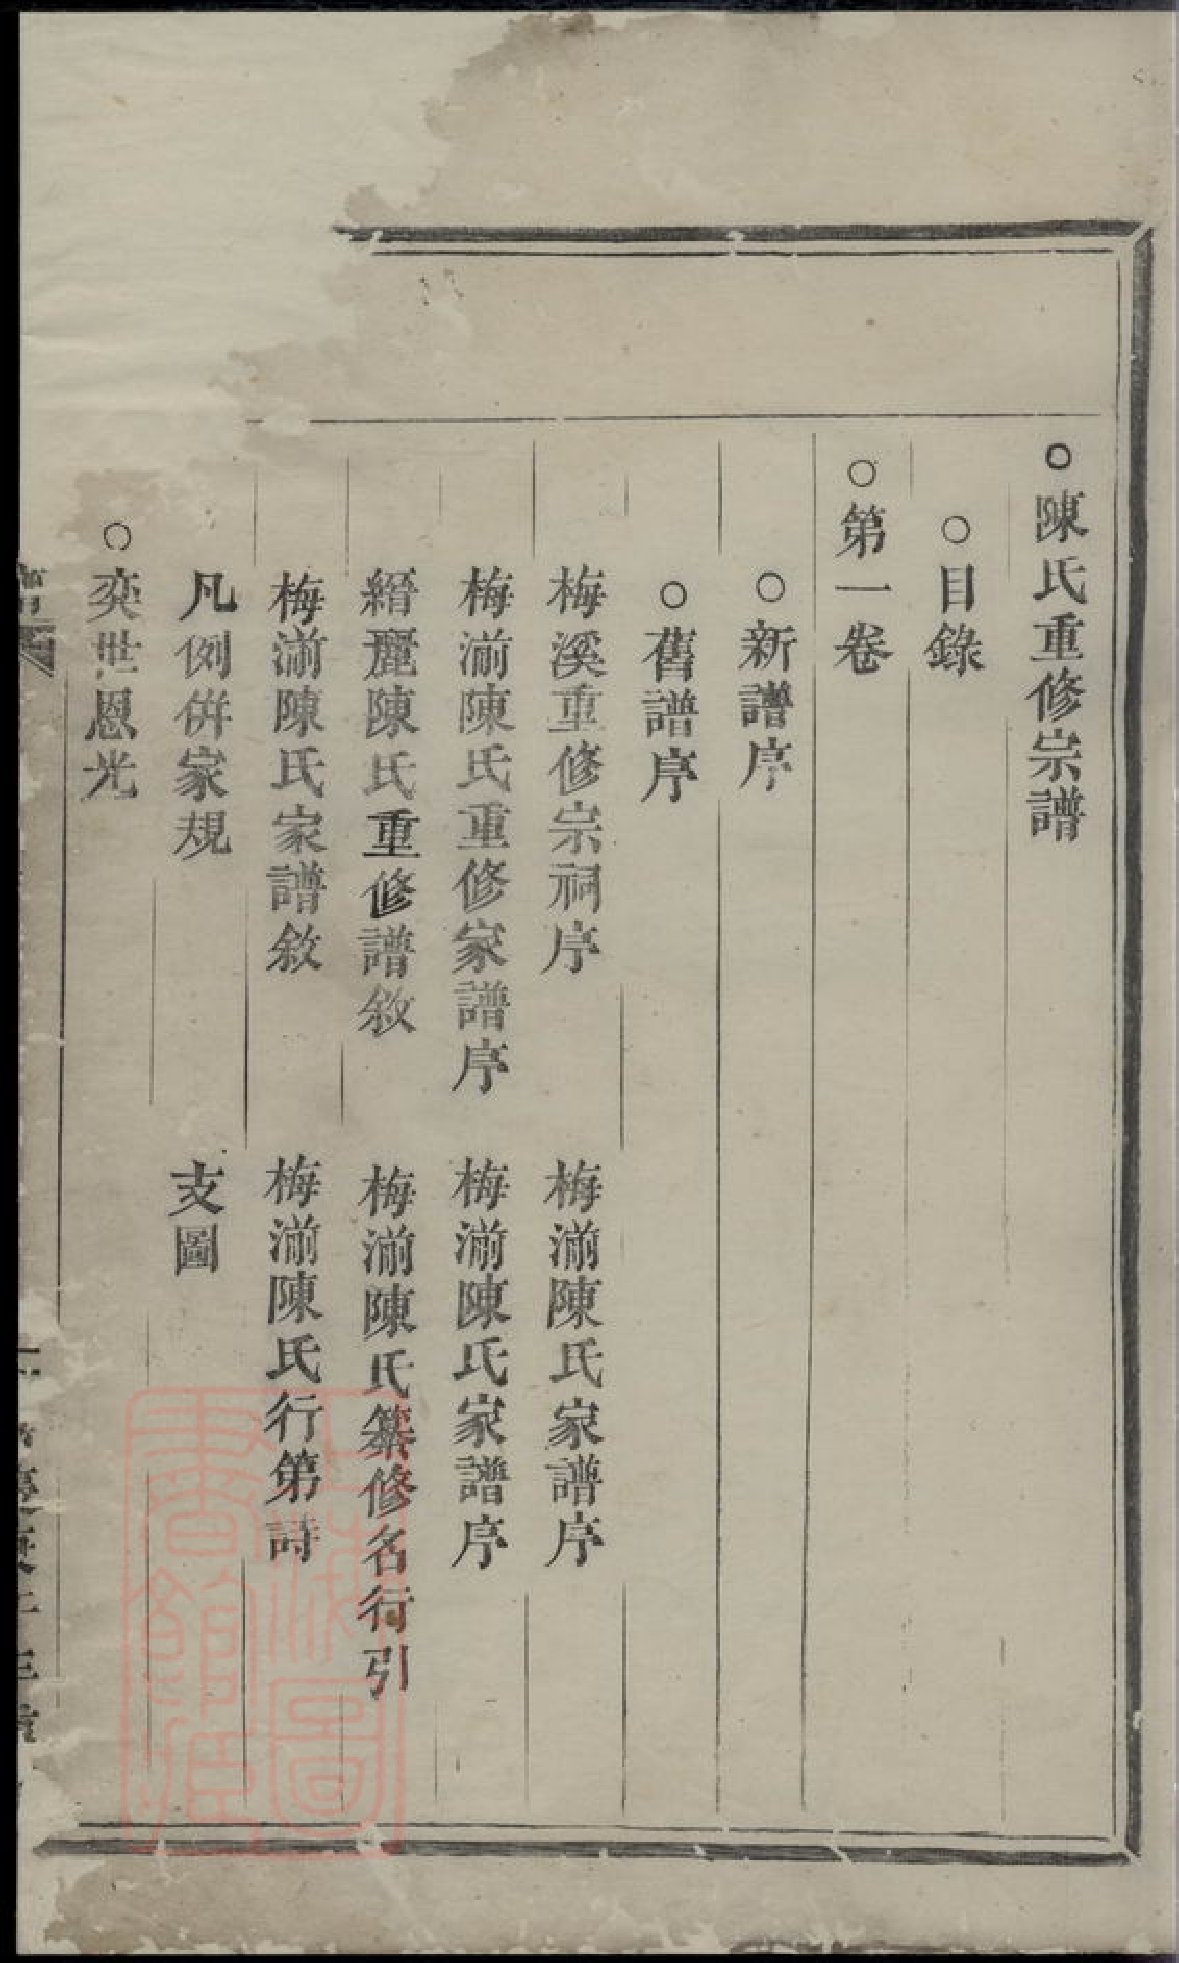 ○陳氏重修宗譜
○目錄
○第一卷
○新譜序
○舊譜序
梅溪重修宗祠序 梅湔陳氏家譜序
梅湔陳氏重修家譜序 梅湔陳氏家譜序
縉麗陳氏重修譜敘 梅湔陳氏纂修名行引
梅湔陳氏家譜敘 梅湔陳氏行第詩
凡例併家規 支圖
○奕世恩光
上海圖書館藏